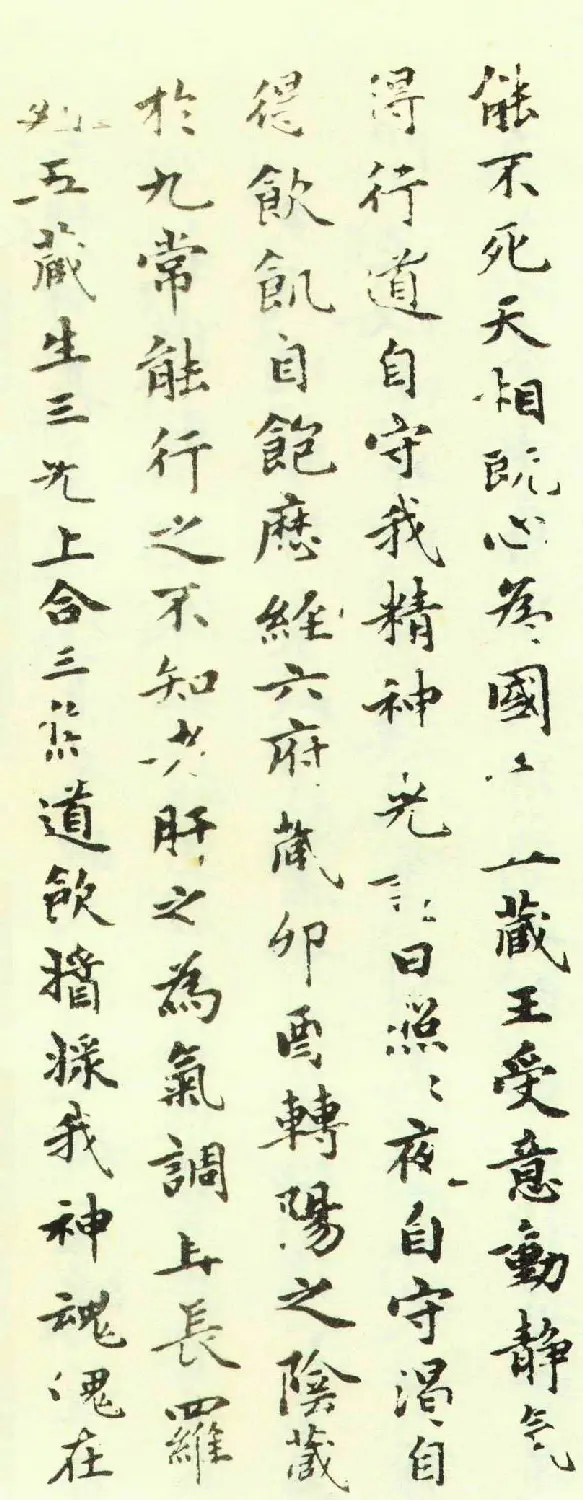 能不死天相既心為國 藏王受意動静气
得行道自守我精神光 日照〻夜自守渴自
得飲飢自飽歷經六府藏卯酉轉陽之陰藏
於九常能行之不知老肝之為氣調与長羅
列五藏生三光上合三焦道飲醬漿我神魂魄在